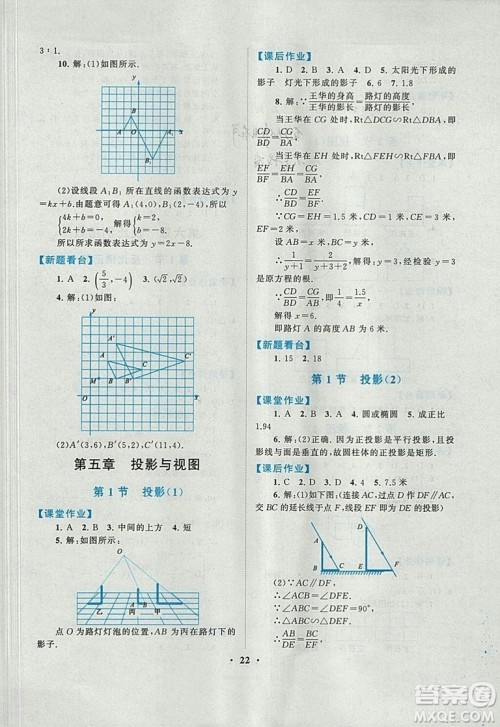 3∶1.
10. 解:(1)如图所示.
(2)设线段 A₁B₁ 所在直线的函数表达式为 y
=kx+b,由题意可得 A₁(4,0),B₁(2,-4),
{4k+b=0, {k=2,
{2k+b=-4, {b=-8.
所以所求函数表达式为 y=2x-8.
【新题看台】
1. A 2. (5/3,-4) 3. (√2,√2)
4. 解:(1)如图所示.
A′
A
C
C′
M
B
B′
(2)A′(3,6),B′(5,2),C′(11,4).
第五章 投影与视图
第1节 投影(1)
【课堂作业】
1. A 2. B 3. 中间的上方 4. 短
5. 解:如图所示.
O
乙 丙 甲
点 O 为路灯灯泡的位置,AB 为路灯下丙的
影子.
【课后作业】
1. D 2. B 3. A 4. D 5. 太阳光下形成的
影子 灯光下形成的影子 6. 7 7. 1.8
8. 解:∵王华的身高/王华的影长=路灯的高度/路灯的影长,
当王华在 CG 处时,Rt△DCG∽Rt△DBA,
即CD/BD=CG/AB.
当王华在 EH 处时,Rt△FEH∽Rt△FBA,
即EF/BF=EH/AB=CG/AB,∴CD/BD=EF/BF.
∵CG=EH=1.5 米,CD=1 米,CE=3 米,
EF=2 米,
设 AB=x,BC=y,
∴1/(y+1)=2/(y+5),解得 y=3,经检验 y=3 是
原方程的根.
∵CD/BD=CG/AB,∴1.5/x=1/4,
解得 x=6.
即路灯 A 的高度 AB 为 6 米.
【新题看台】
1. 15 2. 18
第1节 投影(2)
【课堂作业】
1. D 2. A 3. D 4. 圆或椭圆 5. 正比
1.94
6. 解:(1)正确. 因为正投影的投影线垂直于
投影面,故圆柱体的正投影都是圆.
【课后作业】
1. B 2. A 3. D 4. 7.5 5. 22
6. 解:(1)如图所示:(连接AC,过点 D 作 DF∥
AC 交 BC 的延长线于点 F,线段 EF 即为 DE 的投影).
A
B C
D
E F
(2)∵AC∥DF,
∴∠ACB=∠DFE.
又∵∠ABC=∠DEF=90°,
∴△ABC∽△DEF.
∴AB/DE=BC/EF.
• 22 •
答案圈
MXQE.COM